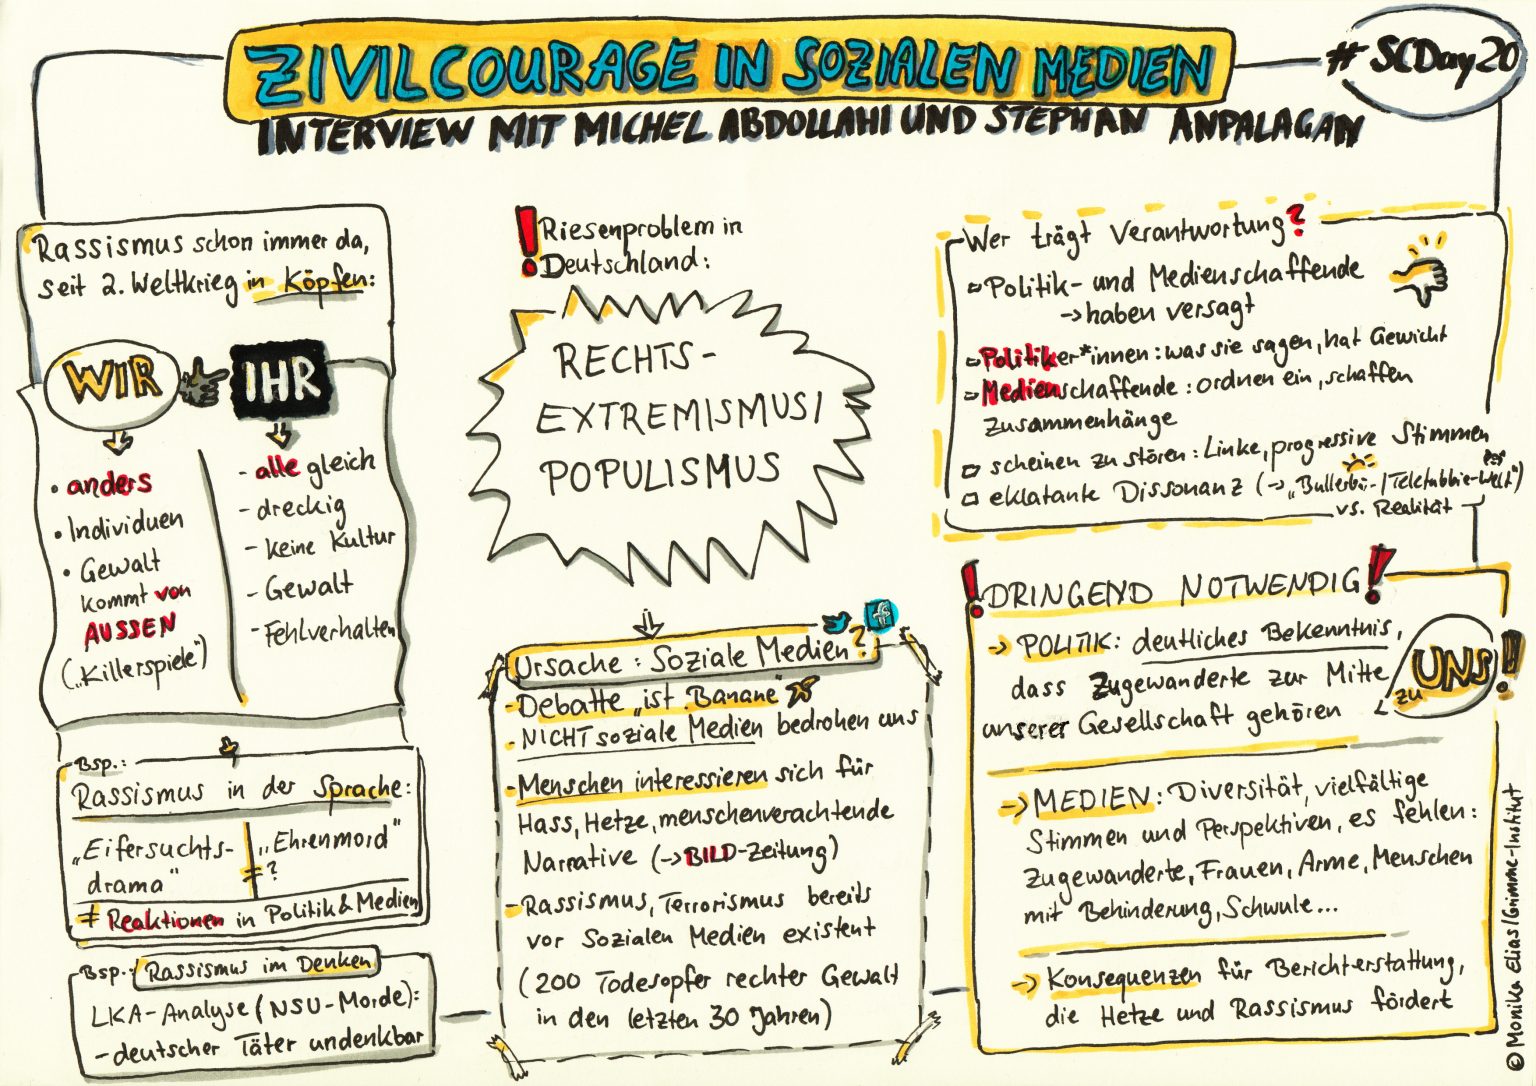 ZIVILCOURAGE IN SOZIALEN MEDIEN
# SCDay20
INTERVIEW MIT MICHEL ABDOLLAHI UND STEPHAN ANPALAGAN
Rassismus schon immer da,
seit 2. Weltkrieg in Köpfen:
WIR
IHR
• anders
• Individuen
• Gewalt
kommt von
AUSSEN
("Killerspiele")
- alle gleich
- dreckig
- keine Kultur
- Gewalt
- Fehlverhalten
Bsp.:
Rassismus in der Sprache:
„Eifersuchts-
drama"
≠
„Ehrenmord"
?
≠ Reaktionen in Politik & Medien
Bsp.: Rassismus im Denken
LKA-Analyse (NSU-Morde):
- deutscher Täter undenkbar
! Riesenproblem in
Deutschland:
RECHTS-
EXTREMISMUS /
POPULISMUS
Ursache: Soziale Medien?
- Debatte „ist Banane"
- NICHT soziale Medien bedrohen uns
- Menschen interessieren sich für
Hass, Hetze, menschenverachtende
Narrative (→ BILD-Zeitung)
- Rassismus, Terrorismus bereits
vor Sozialen Medien existent
(200 Todesopfer rechter Gewalt
in den letzten 30 Jahren)
Wer trägt Verantwortung?
Politik- und Medienschaffende
→ haben versagt
Politiker*innen: was sie sagen, hat Gewicht
Medienschaffende: ordnen ein, schaffen
Zusammenhänge
scheinen zu stören: Linke, progressive Stimmen
eklatante Dissonanz (→ „Bullerbü-/Teletubbie-Welt")
vs. Realität
! DRINGEND NOTWENDIG!
→ POLITIK: deutliches Bekenntnis,
dass Zugewanderte zur Mitte
unserer Gesellschaft gehören
zu UNS!
→ MEDIEN: Diversität, vielfältige
Stimmen und Perspektiven, es fehlen:
Zugewanderte, Frauen, Arme, Menschen
mit Behinderung, Schwule...
→ Konsequenzen für Berichterstattung,
die Hetze und Rassismus fördert
© Monika Elias/Grimme-Institut